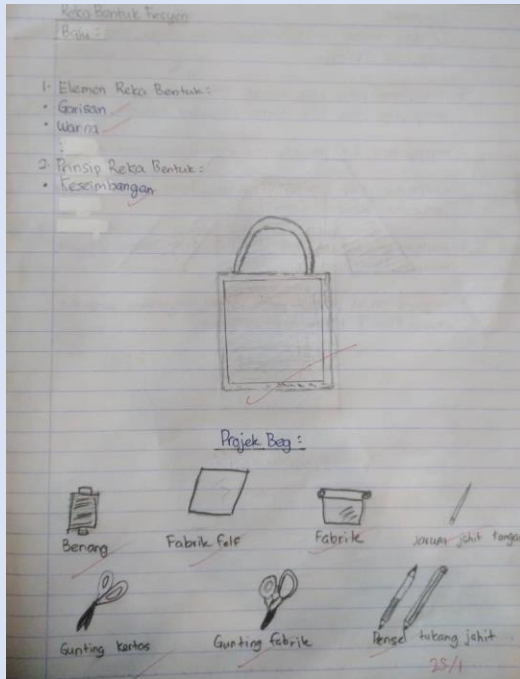 Reka Bentuk Fesyen
Baju :
1. Elemen Reka Bentuk :
• Garisan
• Warna
:
2. Prinsip Reka Bentuk :
• Keseimbangan
Projek Beg :
Benang
Fabrik felf
Fabrik
Jarum jahit tangan
Gunting kertas
Gunting fabrik
Pensel tukang jahit
25/1